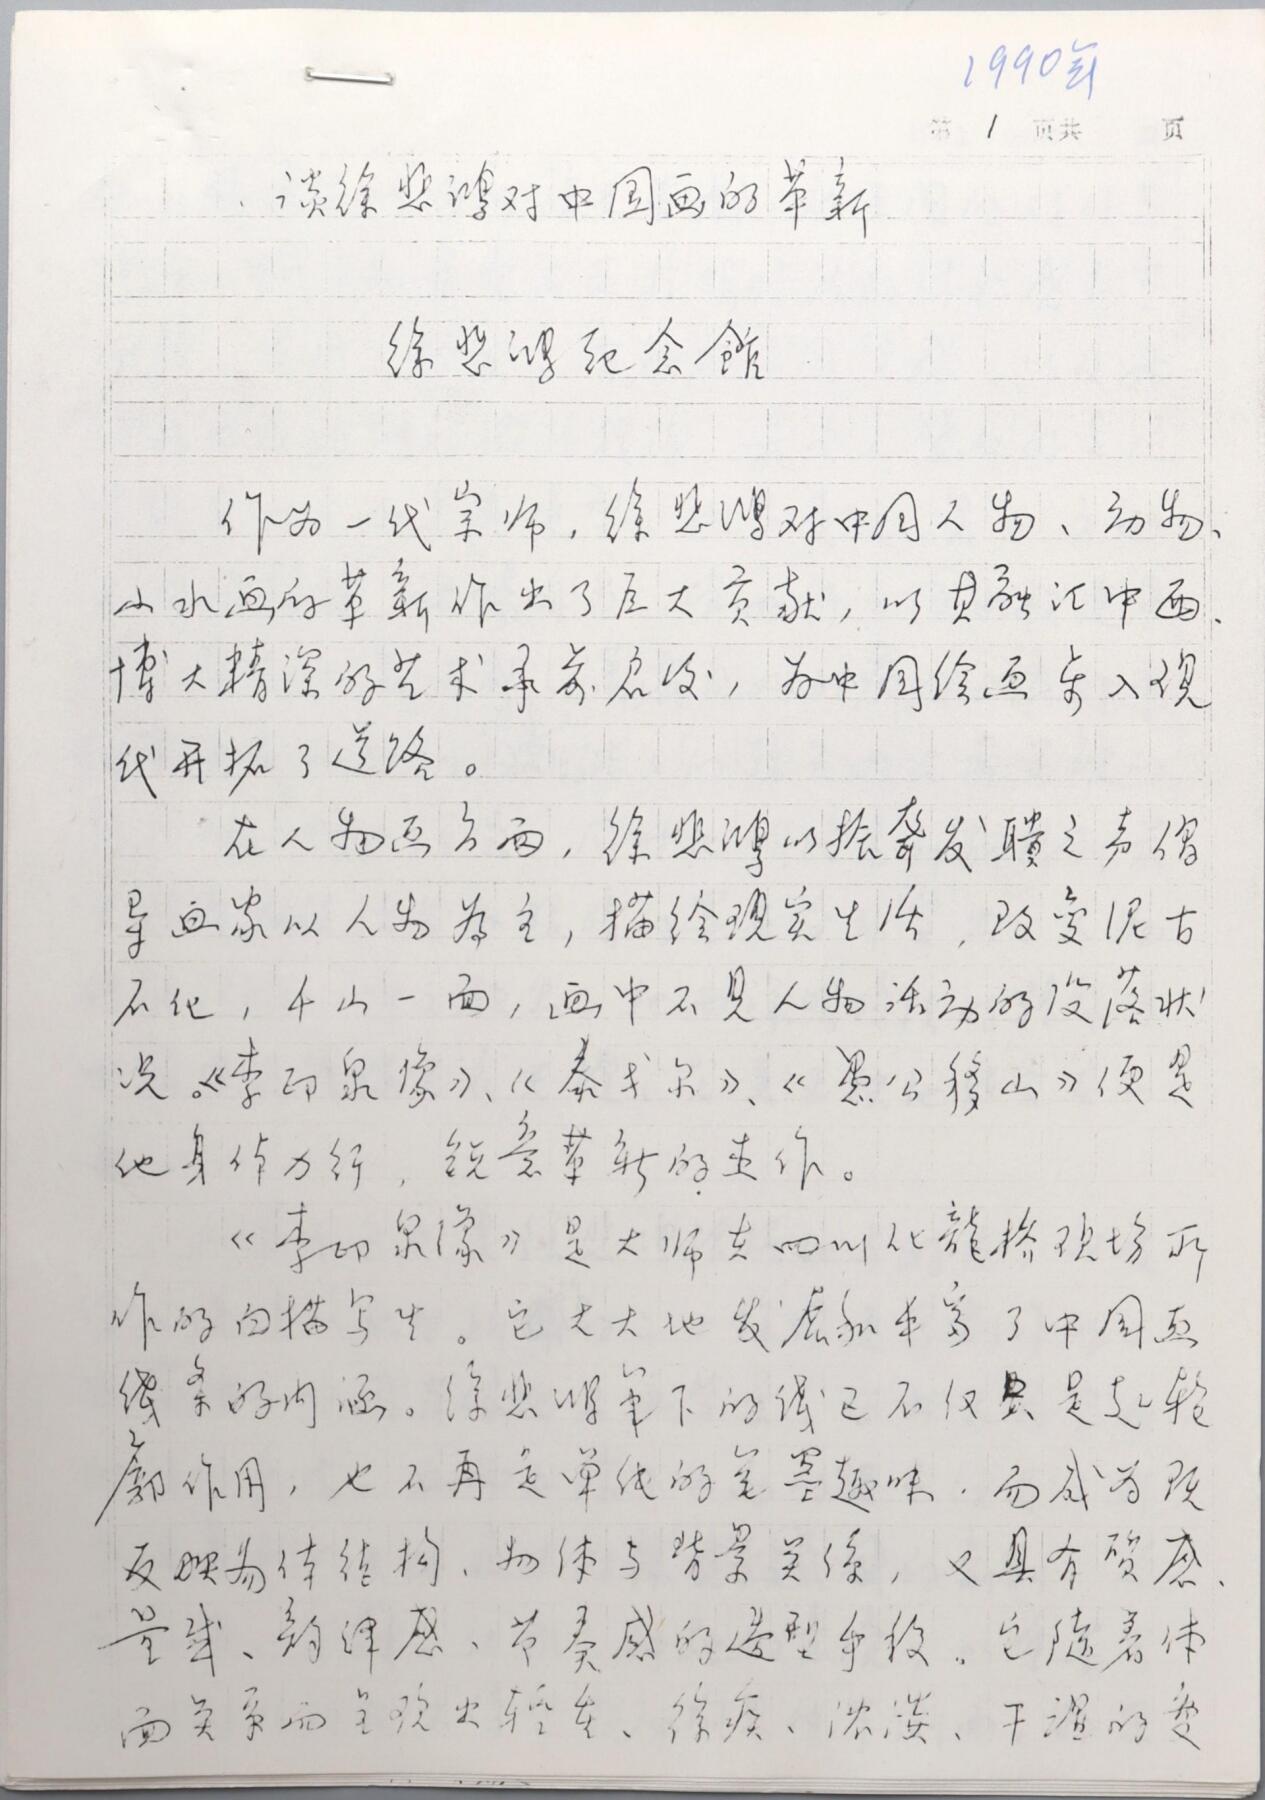 1990年
第 1 页共 页
谈徐悲鸿对中国画的革新
徐悲鸿纪念館
作为一代宗师，徐悲鸿对中国人物、动物、
山水画的革新作出了巨大贡献，以其融汇中西、
博大精深的艺术承前启后，为中国绘画步入现
代开拓了道路。
在人物画方面，徐悲鸿以振聋发聩之声倡
导画家以人物为主，描绘现实生活，改变泥古
不化，千山一面，画中不见人物活动的没落状
况。《李印泉像》、《泰戈尔》、《愚公移山》便是
他身体力行，锐意革新的杰作。
《李印泉像》是大师在四川化龍桥现场所
作的白描写生。它大大地发展和丰富了中国画
线条的内涵。徐悲鸿笔下的线已不仅只是起轮
廓作用，也不再是单纯的笔墨趣味，而成为既
反映物体结构、物体与背景关係，又具有质感、
量感、韵律感、节奏感的造型手段。它随着体
面关系而呈现出轻重、徐疾、浓淡、干湿的变